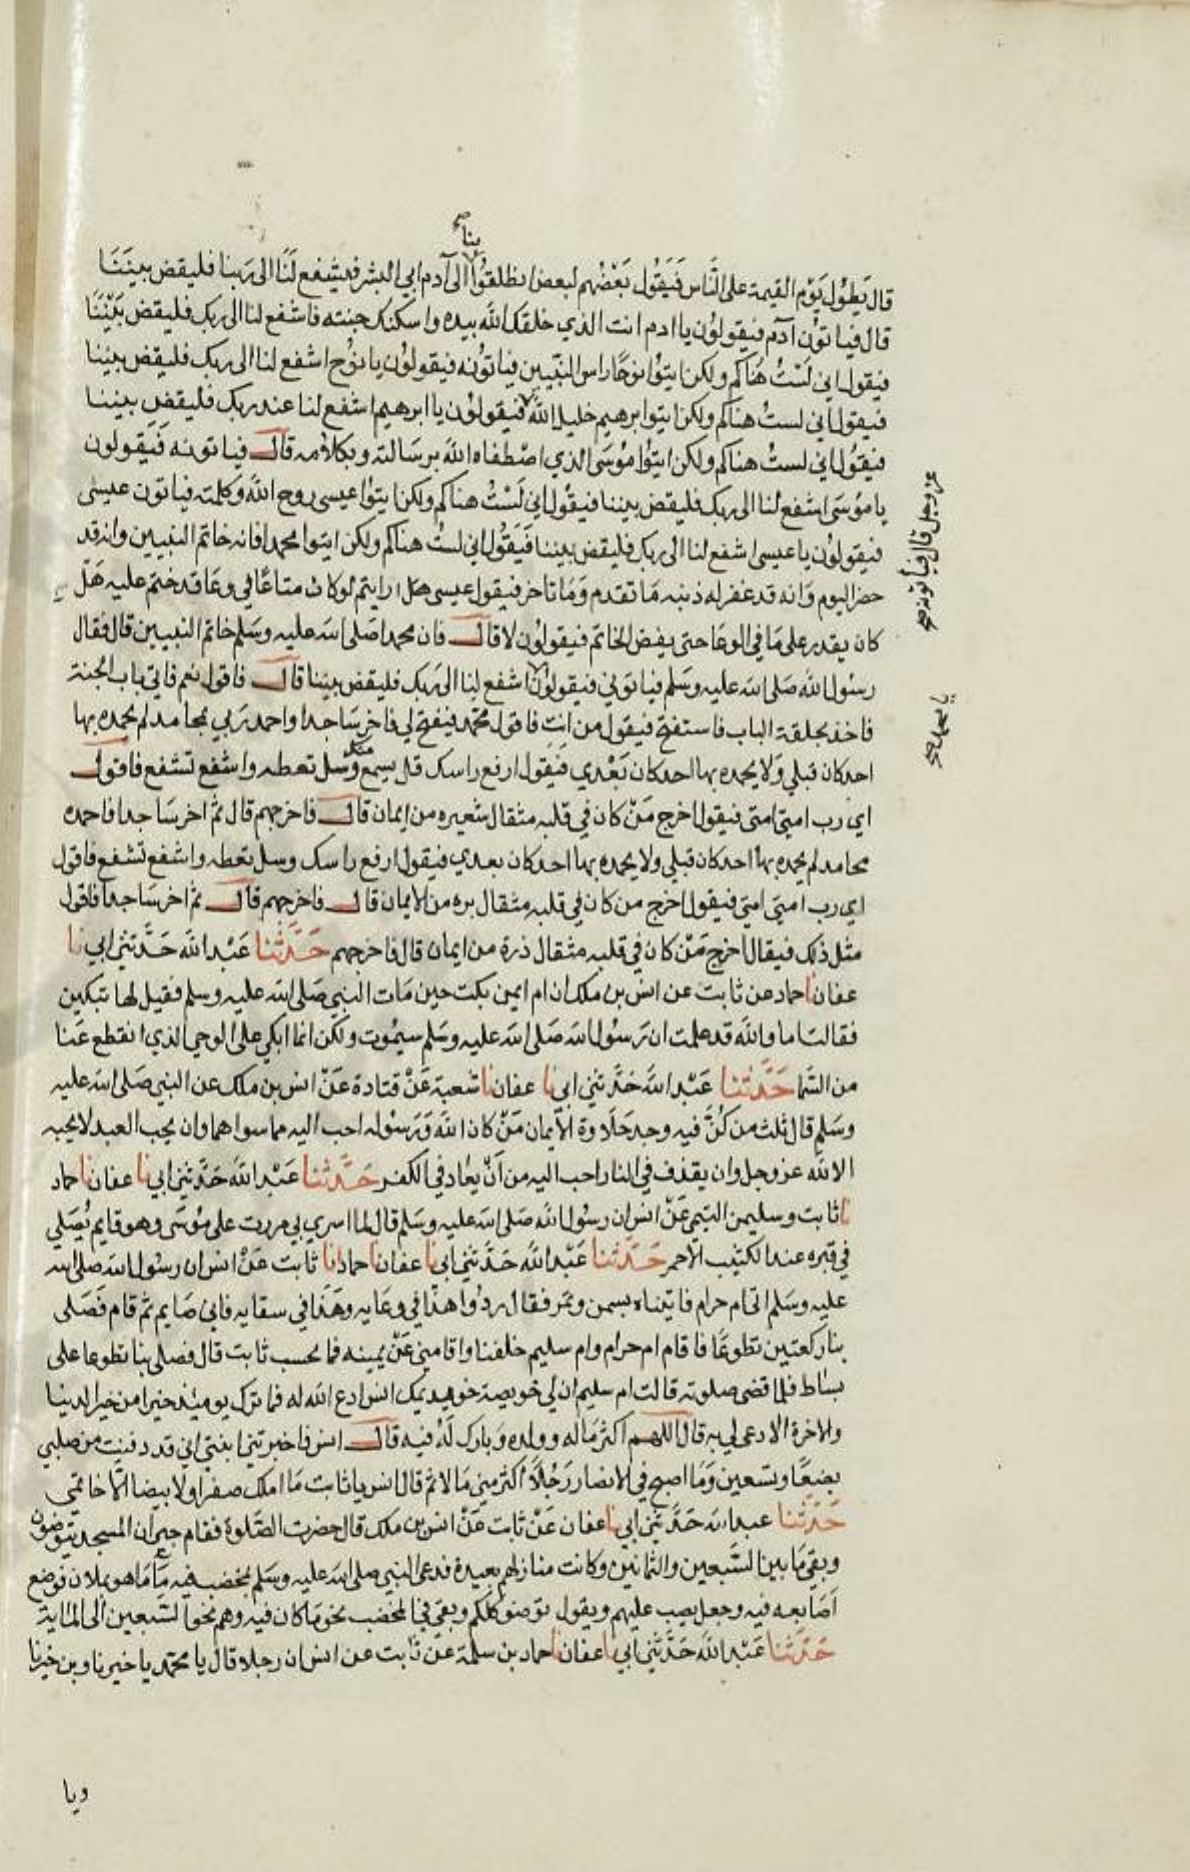 بنا صح
قال يَطُول يَوْم القيمة على النَّاس فَيَقُول بَعْضُهم لبعض انطلقوْا الى آدم ابي البشر فيشفع لَنَا الى رَبنا فليقض بينَنَا
قال فياتوْن آدم فيقولوُن يا ادم انت الذي خلقك الله بيده واسكنك جنته فاشفع لنا الى ربك فليقض بَيْنَنَا
فيقول اني لَسْتُ هُنَاكم ولكن ايتوْا نوحًا راس النبّيين فياتوُنه فيقولوُن يا نوُح اشفع لنا الى ربك فليقض بيننا
فيقول اني لست هناكم ولكن ايتوا ابرهيم خليل الله فيقولوُن يا ابرهيم اشفع لنا عند ربك فليقض بيننا
فيقوُل اني لستُ هناكم ولكن ايتوُا موُسَى الذي اصْطفاه الله برسَالته وبكلامه قال فياتونه فَيَقولون
يا موُسَى اشفع لنا الى ربك فليقض بيننا فيقوُل اني لَسْتُ هناكم ولكن ايتوْا عيسى روح الله وكلمته فياتون عيسى
فيقولوُن يا عيسى اشفع لنا الى ربك فليقض بيننا فَيَقوُل اني لستُ هناكم ولكن ايتوا محمدا فانه خاتم النبيين وانه قد
حضر اليوم وَانه قد غفر له ذنبه مَا تقدم وَمَا تاخر فيقول عيسى هل ارايتم لو كان متاعًا في وعَا قد ختم عليه هَل
كان يقدر على مَا في الوعَا حتى يفض الخاتم فيقولوُن لا قال فان محمدا صَلى الله عليه وسَلم خاتم النبيين قال فقال
رسوُل الله صَلى الله عليه وسَلم فياتوني فيقولوُن اشفع لنا الى رَبك فليقض بيننا قال فاقول نعم فاتي باب الجنة
فاخذ بحلقة الباب فاستفتح فيقول من انت فاقول محمّد فيفتح لي فاخر سَاجدا واحمد ربي بمحامد لم يحمده بها
احد كان قبلي وَلا يحمده بها احد كان بَعْدي فيَقول ارفع راسك قل يسمع منك وسَل تعطه واشفع تشفع فاقول
اي رب امتي امتي فيقول اخرج مَنْ كان في قلبه مثقال شعيره من ايمان قال فاخرجهم قال ثمّ اخر سَاجدا فاحمده
محامد لم يحمده بها احد كان قبلي ولا يحمده بها احد كان بعدي فيقول ارفع راسك وسل تعطه واشفع تشفع فاقول
اي رب امتي امتي فيقول اخرج من كان في قلبه مثقال بره من الايمان قال فاخرجهم قال ثم اخر سَاجدا فاقول
مثل ذلك فيقال اخرج مَنْ كان في قلبه مثقال ذرة من ايمان قال فاخرجهم حَدَّثنا عَبْد الله حَدَّثني ابي نا
عفان نا حماد عن ثابت عن انس بن ملك ان ام ايمن بكت حين مَات النبي صَلى الله عليه وسلم فقيل لها تبكين
فقالت اما والله قد علمت ان رَسوُل الله صَلى الله عليه وسَلم سيموُت ولكن انما ابكي على الوحي الذي انقطع عَنا
من السَّما حَدَّثنا عَبْد الله حَدَّثني ابي نا عفان نا شعبة عَنْ قتادة عَنْ انس بن ملك عن النبي صَلى الله عليه
وسَلم قال ثلث من كُنَّ فيه وجد حَلاوة الايمان مَنْ كان الله وَرَسوْله احب اليه مما سواهما وان يحب العبد لا يحبه
الا لله عز وجل وان يقذف في النار احب اليه من اَنْ يعُاد في الكفر حَدَّثنا عَبْد الله حَدَّثني ابي نا عفان نا حماد
نا ثابت وسليمن التيمي عَنْ انس ان رسوُل الله صَلى الله عليه وسَلم قال لما اسري بي مررت على موُسَى وهو قايم يُصَلي
في قبره عند الكثيب الاحمر حَدَّثنا عَبْد الله حَدَّثني ابي نا عفان نا حماد انا ثابت عَنْ انس ان رسُول الله صَلى الله
عليه وسَلم اتى ام حرام فاتيناه بسمن وتمر فقال ردوا هذا في وعايه وهَذا في سقايه فاني صَايم ثم قام فَصَلى
بنا ركعتين تطوعًا فاقام ام حرام وام سليم خلفنا واقامني عَنْ يمينه فما يحسب ثابت قال فصلى بنا تطوعا على
بساط فلما قضى صلوته قالت ام سليم ان لي خويصة خويدمك انس ادع الله له فما ترك يوميذ خيرا من خير الدنيا
والاخرة الا دعى لي به قال اللهم اكثر مَاله وولده وَبارك لَهُ فيه قال انس فاخبرتني ابنتي اني قد دفنت من صلبي
بضعًا وتسعين وَمَا اصبح في الانصار رَجُلاً اكثر مني مَالا ثم قال انس يا ثابت مَا املك صفرا ولا بيضا الا خاتمي
حَدَّثنا عبد الله حَدَّثني ابي نا عفان عَنْ ثابت عَنْ انس بن ملك قال حضرت الصَّلوة فقام جيران المسجد يتوضون
وبقي مَا بين السَّبعين والثمانين وكانت منازلهم بعيدة فدعى النبي صلى الله عليه وسَلم بمخضب فيه مَا مَا هو بملان فوضع
اصَابعه فيه وجعل يصب عليهم ويقول توضوا كلكم وبقي في المخضب نحو مَا كان فيه وهم نحو السَّبعين الى الماية
حَدَّثنا عَبْد الله حَدَّثني ابي نا عفان نا حماد بن سلمة عَن ثابت عن انس ان رجلا قال يا محمّد يا خيرنا وبن خيرنا
عز وجل قال فياتونه صح
يا محمد صح
ويا